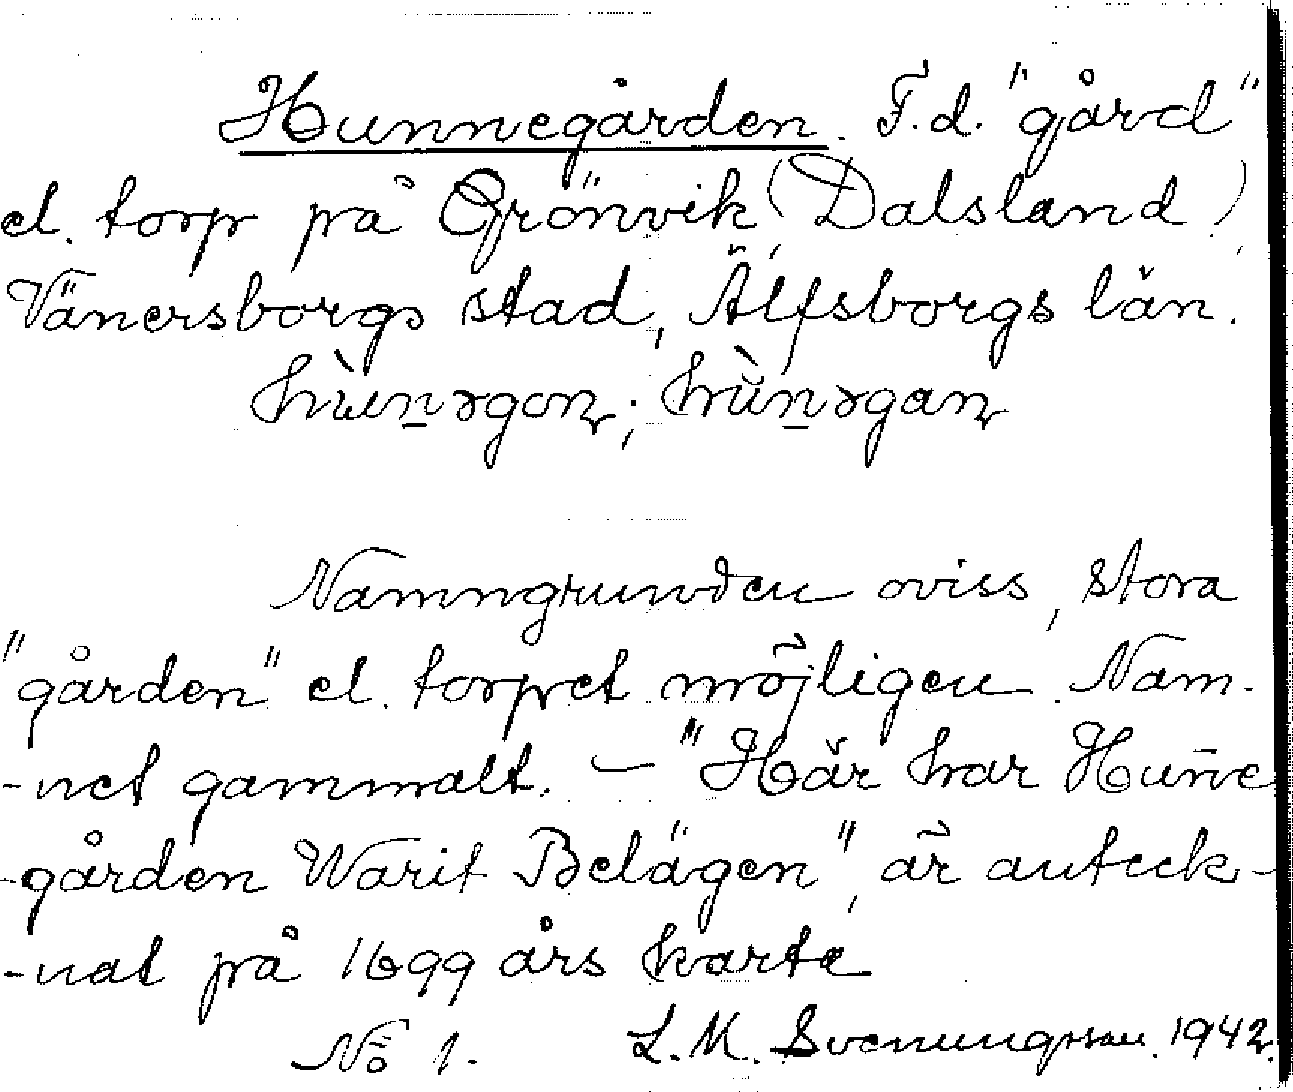 Hunnegården. F.d. "gård"
el. torp på Grönvik (Dalsland),
Vänersborgs stad, Älfsborgs län.
Namngrunden oviss, stora
"gården" el. torpet möjligen. Nam-
-net gammalt. — "Här har Hun̄e
-gården Warit Belägen", är anteck-
-nat på 1699 års karte
No 1. L. M. Svenungsson. 1942.